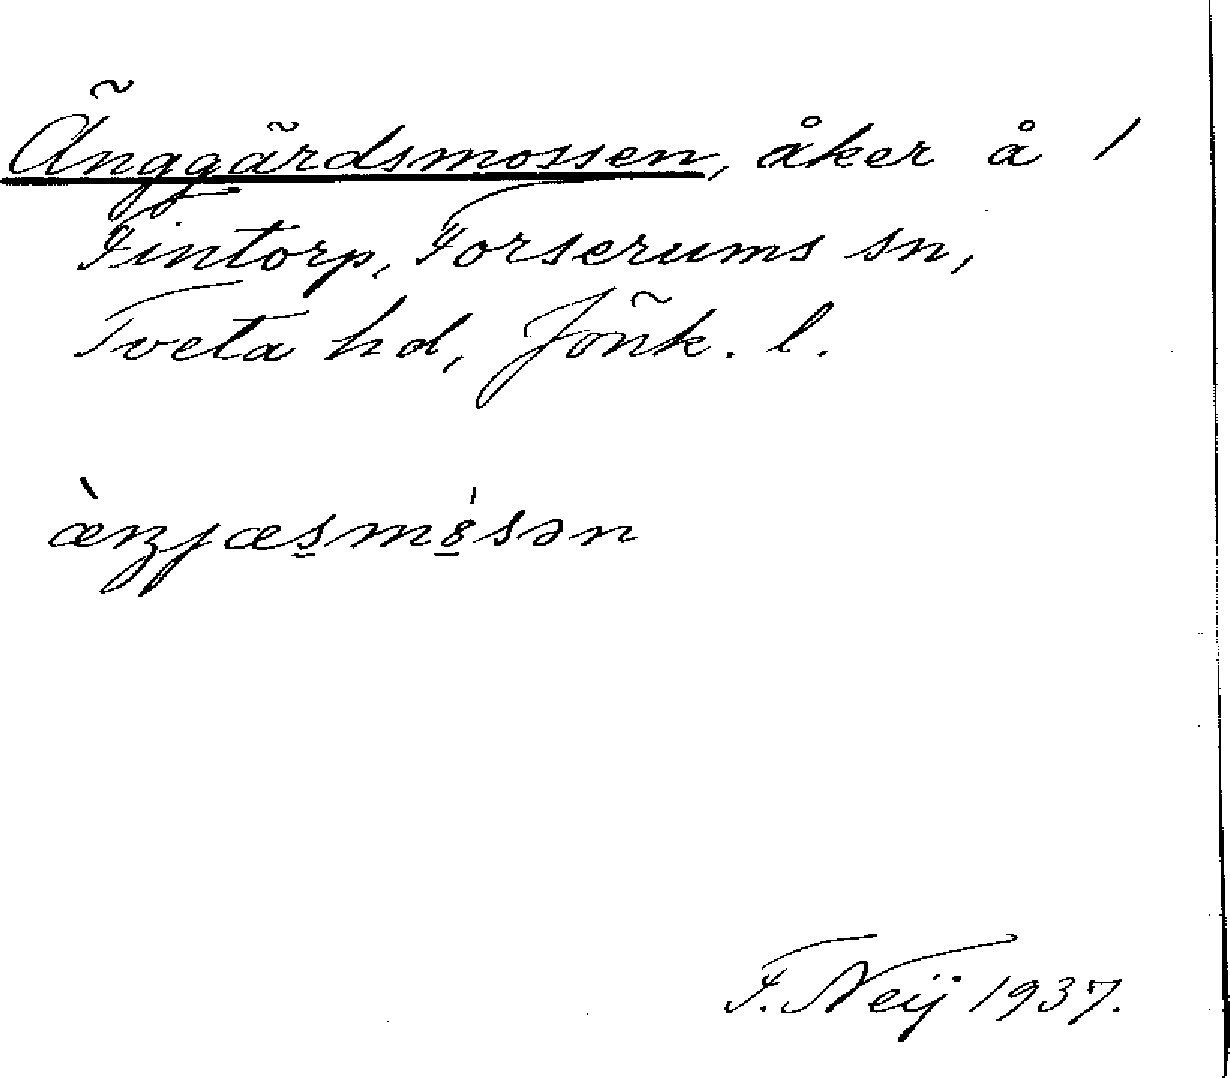 Änggärdsmossen, åker å /
Fintorp, Forserums sn,
Tveta hd, Jönk. l.
æ̀ŋjæs̠mo̠̍sən
F. Neij 1937.